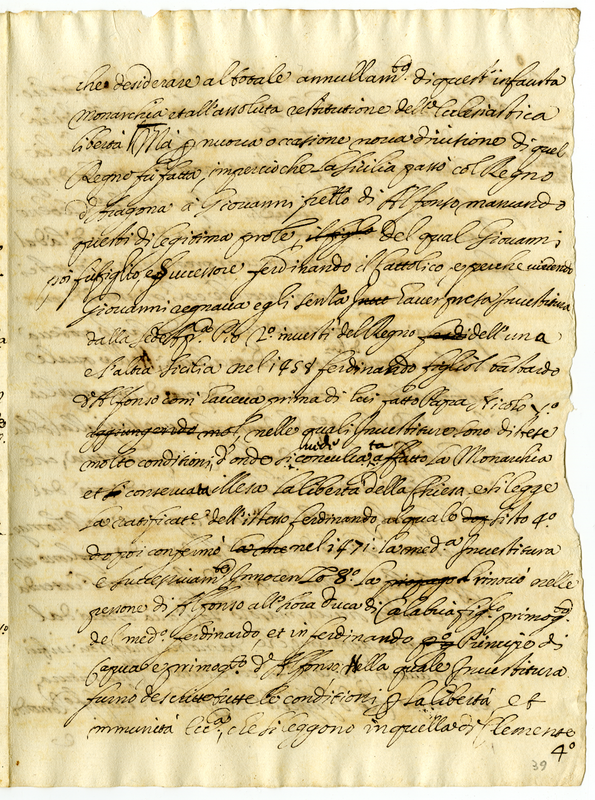 che desiderare al totale annullam.to di quest'infausta
Monarchia et all'assoluta restitutione dell'Ecclesiastica
libertà. Mà p nuova occasione nova divisione di quel
Regno fù fatta, imperciòche la Sicilia passò col Regno
d'Aragona à Giovanni frello di Alfonso mancando
questi di legitima prole, il figlo del qual Giovanni
poi fu figlio e successore Ferdinando il Cattolico, e perche vivendo
Giovanni regnava egli senza haver presa Investitura
dalla Sede Ap.ca Pio 2.o investì del Regno dell'una
e l'altra Sicilia nel 1458 Ferdinando figliol bastardo
d'Alfonso com'haveva prima di lui fatto Papa Nicolò V.o
nelle quali Investiture sono distese
molte conditioni, d'onde si conculca affatto la Monarchia
et conservata illesa la libertà della Chiesa, e si legge
la ratificat.e dell'istesso Ferdinando al quale Sisto 4.o
poi confirmò nel 1471. la med.a Investitura
e successivam.te Innocenzo 8.o la rinovò nelle
persone di Alfonso all'hora Duca di Calabria fig.o primog.to
del med.o Ferdinando, et in Ferdinando Principe di
Capua e primog.to d'Alfonso. Nella quale Investitura
furno descritte tutte le conditioni p la libertà, et
immunità Ecc.ca, che si leggono in quella di Clemente
4.o
39